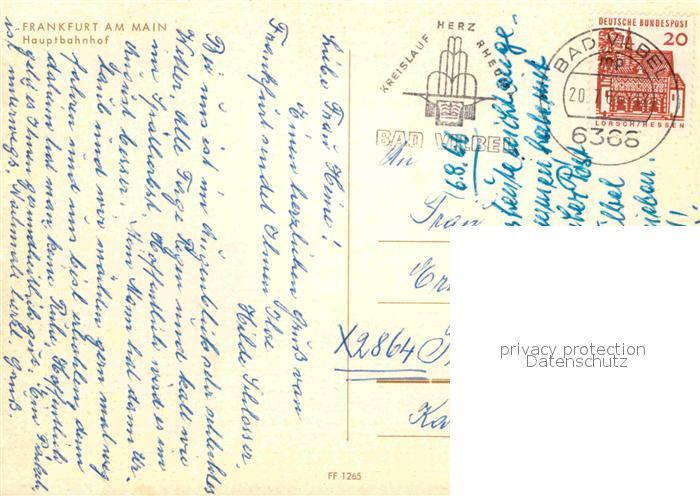 FRANKFURT AM MAIN
Hauptbahnhof
Liebe Frau Heine!
Einen herzlichen Gruß von
Frankfurt sendet Ihnen Ihre
Hilde Schlosser.
Bei uns ist im Augenblick sehr schlechtes
Wetter. Alle Tage Regen und kalt wie
im Spätherbst. Hoffentlich wird es im
August besser. Mein Mann hat dann Ur-
laub und wir möchten gern mal weg
fahren und uns bißl erholen, denn
daheim hat man keine Ruhe. Hoffentlich
geht es Ihnen gesundheitlich gut. Ein
ist unterwegs. Nochmals herzl. Gruß.
KREISLAUF HERZ RHEUMA
BAD VILBEL
BAD VILBEL
20.
6368
DEUTSCHE BUNDESPOST
20
LORSCH/HESSEN
An
Frau
X2864
6.8.
FF 1265
privacy protection
Datenschutz